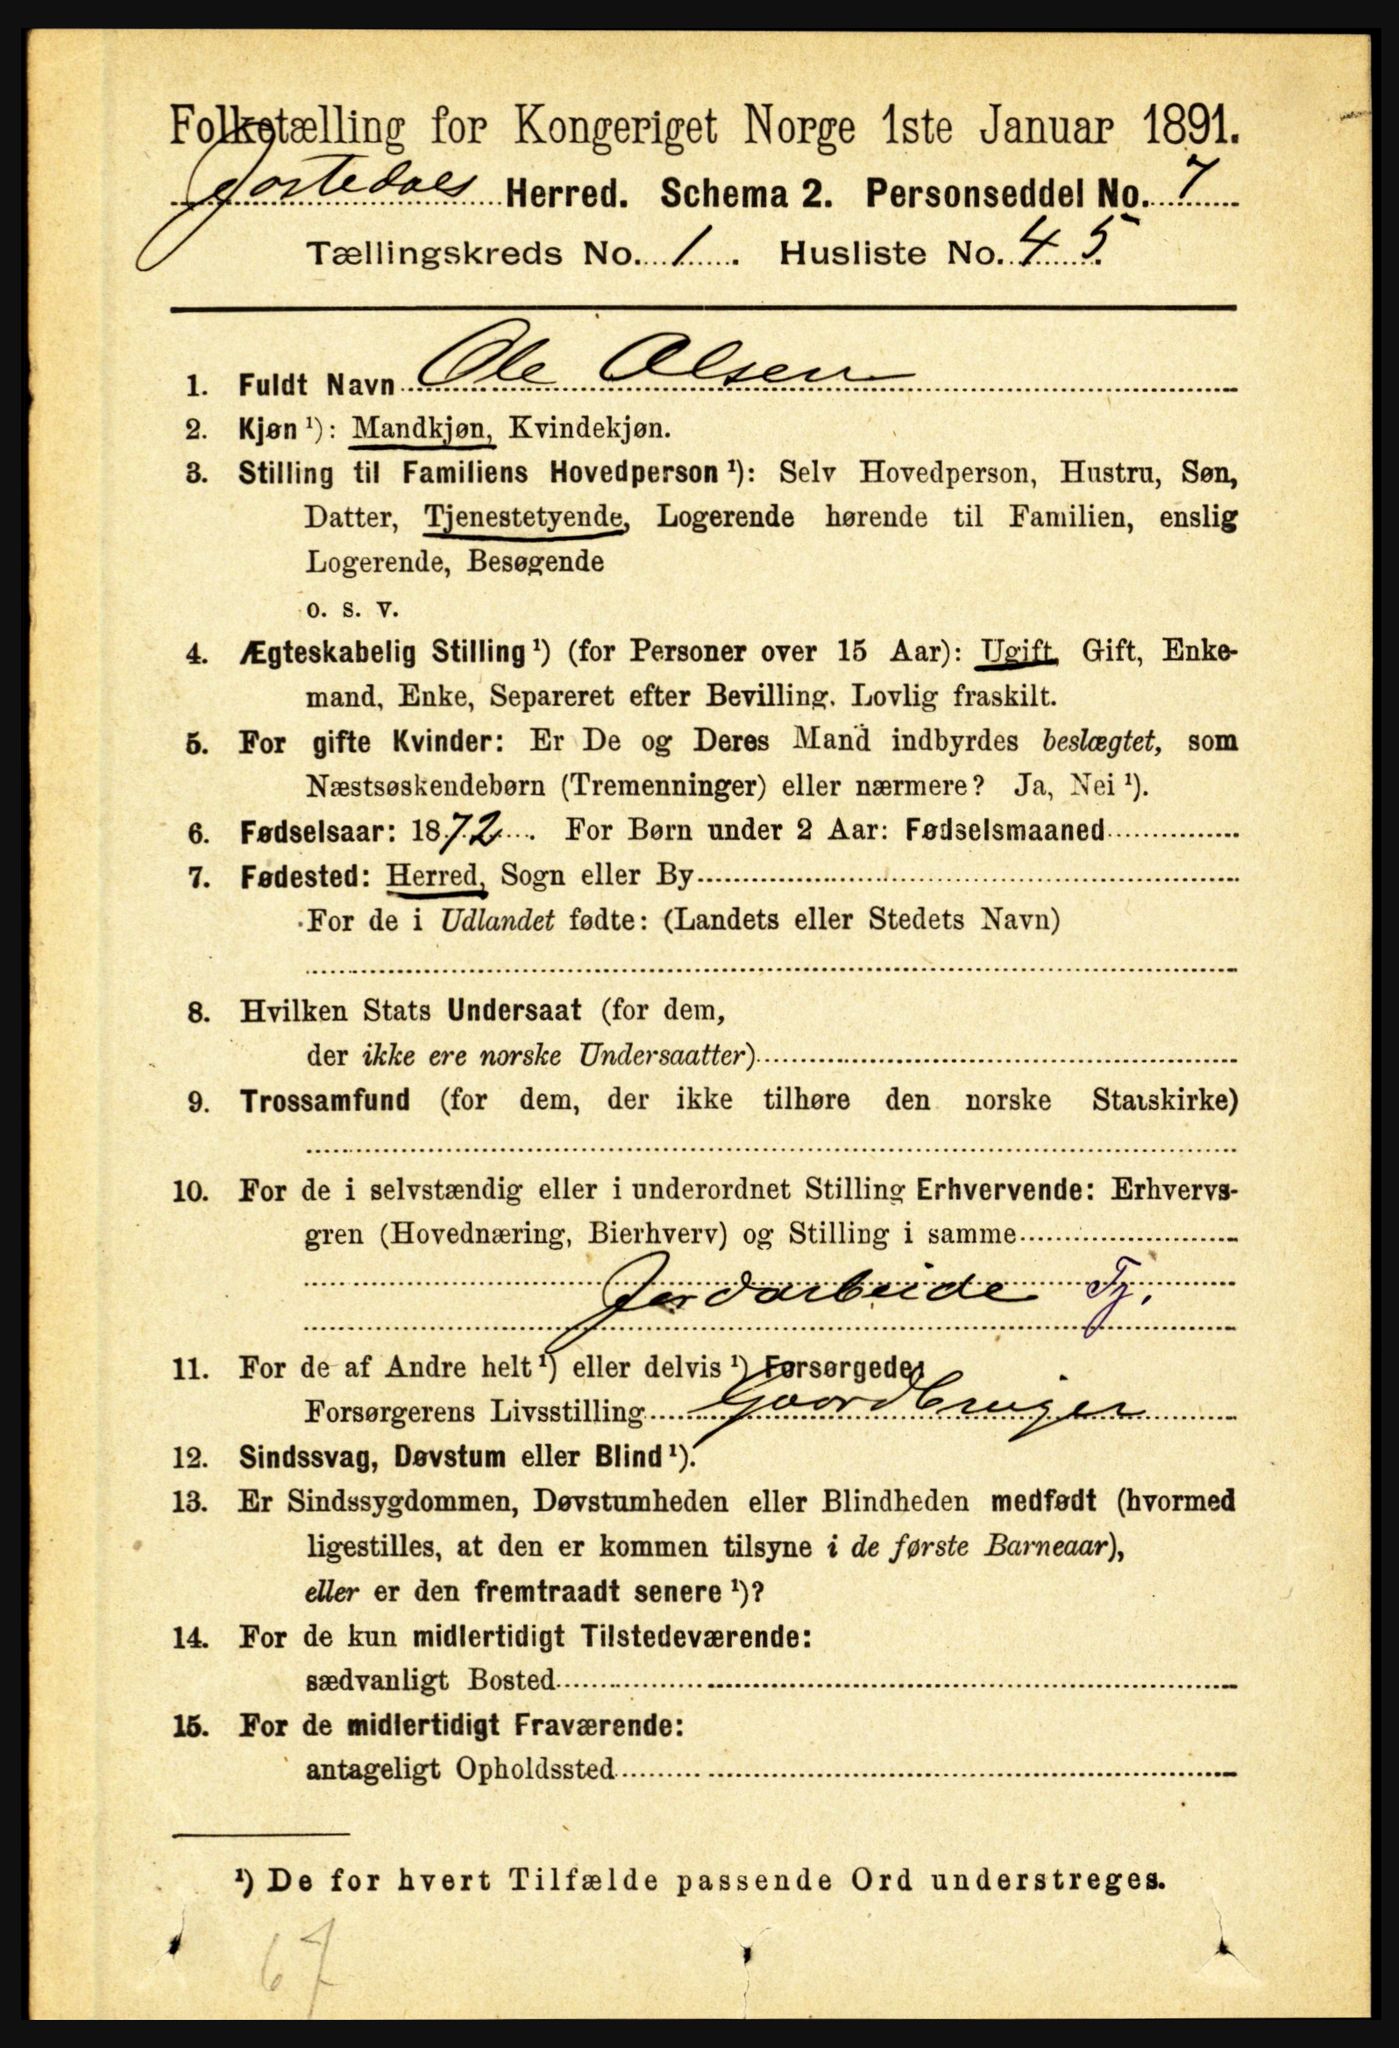 Folketælling for Kongeriget Norge 1ste Januar 1891.
Jostedals Herred. Schema 2. Personseddel No. 7
Tællingskreds No. 1. Husliste No. 45.
1. Fuldt Navn Ole Olsen
2. Kjøn ¹): Mandkjøn, Kvindekjøn.
3. Stilling til Familiens Hovedperson ¹): Selv Hovedperson, Hustru, Søn,
Datter, Tjenestetyende, Logerende hørende til Familien, enslig
Logerende, Besøgende
o. s. v.
4. Ægteskabelig Stilling ¹) (for Personer over 15 Aar): Ugift, Gift, Enke-
mand, Enke, Separeret efter Bevilling. Lovlig fraskilt.
5. For gifte Kvinder: Er De og Deres Mand indbyrdes beslægtet, som
Næstsøskendebørn (Tremenninger) eller nærmere? Ja, Nei ¹).
6. Fødselsaar: 1872. For Børn under 2 Aar: Fødselsmaaned
7. Fødested: Herred, Sogn eller By
For de i Udlandet fødte: (Landets eller Stedets Navn)
8. Hvilken Stats Undersaat (for dem,
der ikke ere norske Undersaatter)
9. Trossamfund (for dem, der ikke tilhøre den norske Statskirke)
10. For de i selvstændig eller i underordnet Stilling Erhvervende: Erhvervs-
gren (Hovednæring, Bierhverv) og Stilling i samme
Jordarbeide Tj.
11. For de af Andre helt ¹) eller delvis ¹) Forsørgede:
Forsørgerens Livsstilling Gaardbruger
12. Sindssvag, Døvstum eller Blind ¹).
13. Er Sindssygdommen, Døvstumheden eller Blindheden medfødt (hvormed
ligestilles, at den er kommen tilsyne i de første Barneaar),
eller er den fremtraadt senere ¹)?
14. For de kun midlertidigt Tilstedeværende:
sædvanligt Bosted
15. For de midlertidigt Fraværende:
antageligt Opholdssted
¹) De for hvert Tilfælde passende Ord understreges.
67